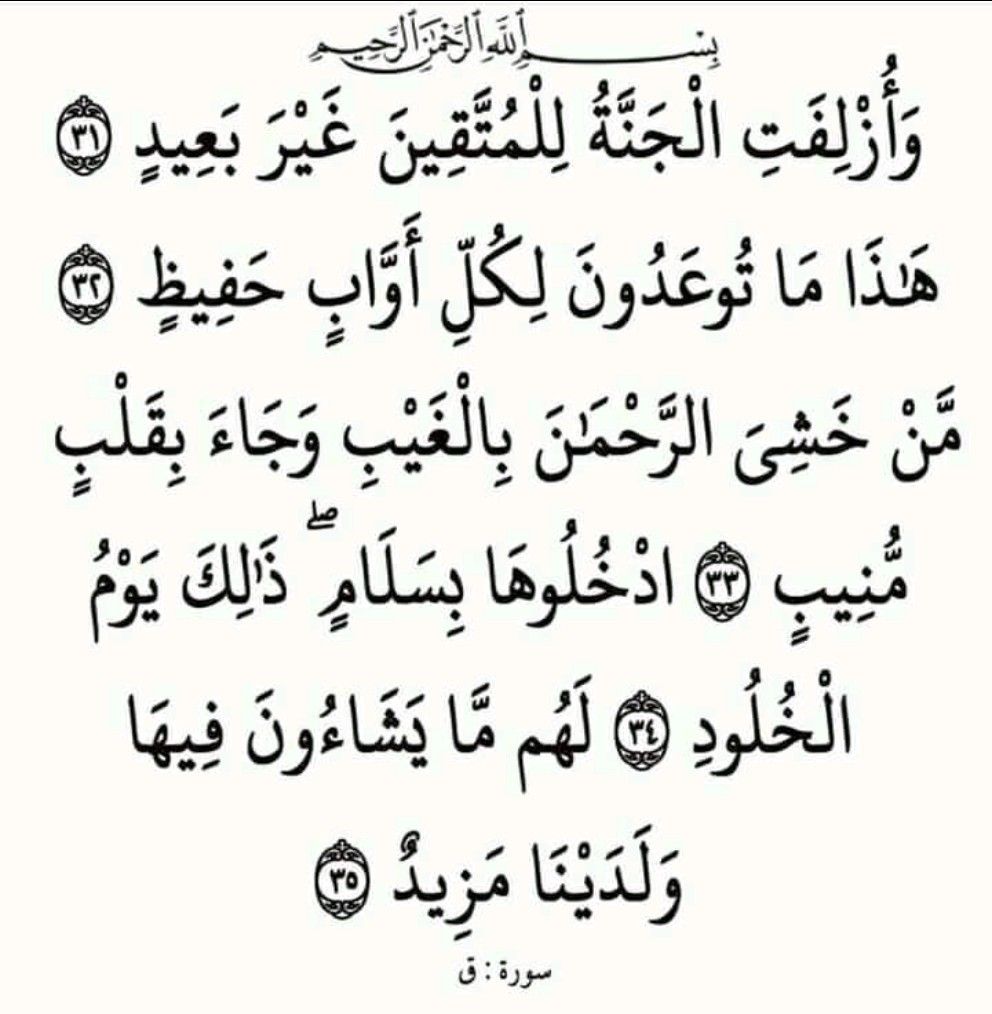 بِسْمِ ٱللَّهِ ٱلرَّحْمَٰنِ ٱلرَّحِيمِ
وَأُزْلِفَتِ الْجَنَّةُ لِلْمُتَّقِينَ غَيْرَ بَعِيدٍ ٣١
هَٰذَا مَا تُوعَدُونَ لِكُلِّ أَوَّابٍ حَفِيظٍ ٣٢
مَّنْ خَشِىَ الرَّحْمَٰنَ بِالْغَيْبِ وَجَاءَ بِقَلْبٍ
مُّنِيبٍ ٣٣ ادْخُلُوهَا بِسَلَامٍ ۖ ذَٰلِكَ يَوْمُ
الْخُلُودِ ٣٤ لَهُم مَّا يَشَاءُونَ فِيهَا
وَلَدَيْنَا مَزِيدٌ ٣٥
سورة : ق